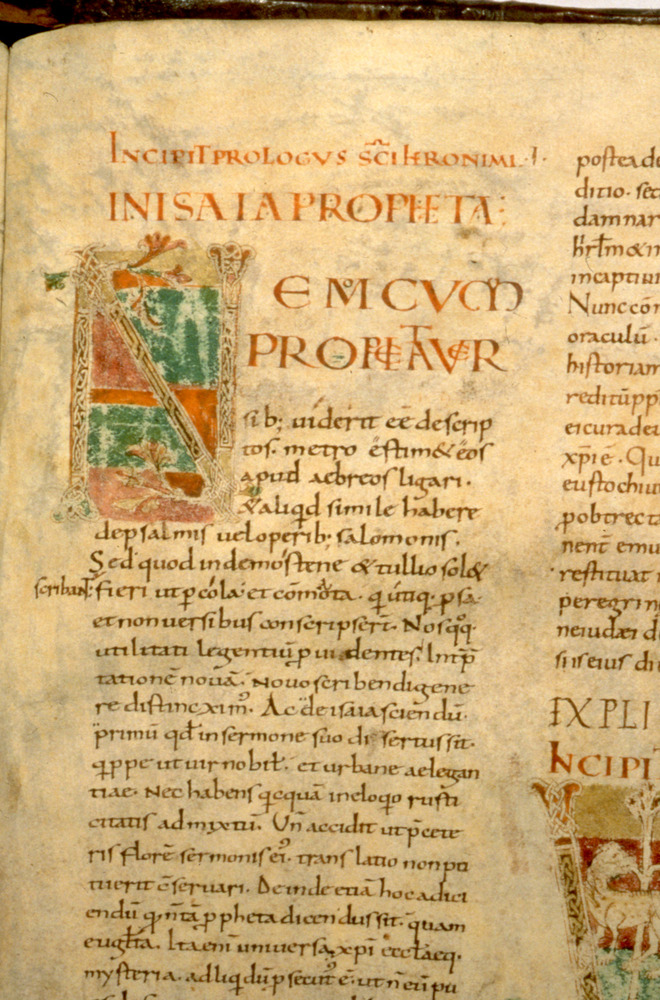 INCIPIT PROLOGVS SC̄I HERONIMI·I·
IN ISAIA PROPHETA:
NEMO CVM
PROPHETAS VER
sib; uiderit eē descrip
tos· metro ēstim& eos
apud aebreos ligari·
&aliqd simile habere
de psalmis uel operib; salomonis.
Sed quod in demostene & tullio sol&
scribant:
fieri ut p cola· et cōmata· q utiq· psa·
et non uersibus conscripsert· Nos qq·
utilitati legentiū puidentes· Intp̄
tationē nouā· nouo scribendi gene
re distinximꝰ· Ac de isaia sciendū·
primū qd̄ in sermone suo disertus sit·
qppe ut uir nobil· et urbane aelegan
tiae· Nec habens qcquā in eloqo rusti
citatis ad mixtū· Un̄ accidit ut p̄ cete
ris florē sermonis ei· translatio non po
tuerit ēseruari· Deinde etiā hoc adici
endū q n̄ tā ppheta dicendus sit· quam
eug̅lta· Ita enī uniuersa xp̄i eccl̄aeq·
mysteria· ad liqdū psecutꝰ ē· ut n̄ eū pu
postea de
ditio· sed
damnar
hrl̄m & in
in captiui
Nunc cōm
oraculū·
historiam
reditū pp
ei cura de
xp̄i ē· Qu
eustochiu
p obtrecta
nent̄ emu
restituat
peregrin
ne iudaei d
sius eius di
EXPLI
INCIPI